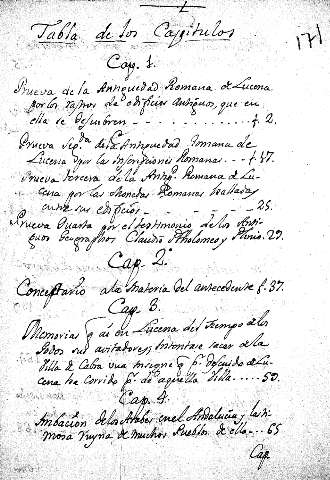 Tabla de los Capitulos
171
Cap. 1.
Prueva de la Antiguedad Romana de Lucena
por los rastros de edificios Antiguos, que en
ella se descubren - - - - - f. 2.
Prueva seg.da de la Antiguedad Romana de
Lucena por las Inscripciones Romanas. . . . f. 17.
Prueva tercera de la Antig. Romana de Lu-
cena por las Monedas Romanas halladas
entre sus edificios - - - - - 25.
Prueva Quarta por el testimonio de los Anti-
guos Geographos Claudio Ptholomeo y Plinio. 29.
Cap. 2.
a la Materia del antecedente f. 37.
Cap. 3.
Memorias q ai en Lucena del tiempo de los
Godos sus avitadores; intentase sacar de la
Villa de Cabra una insigne q p.r descuido de Lu-
cena ha corrido p.r de aquella Villa ..... 50.
Cap. 4.
de los Arabes en el Andalucia y la
ruyna de muchos Pueblos de ella ... 65
Cap.